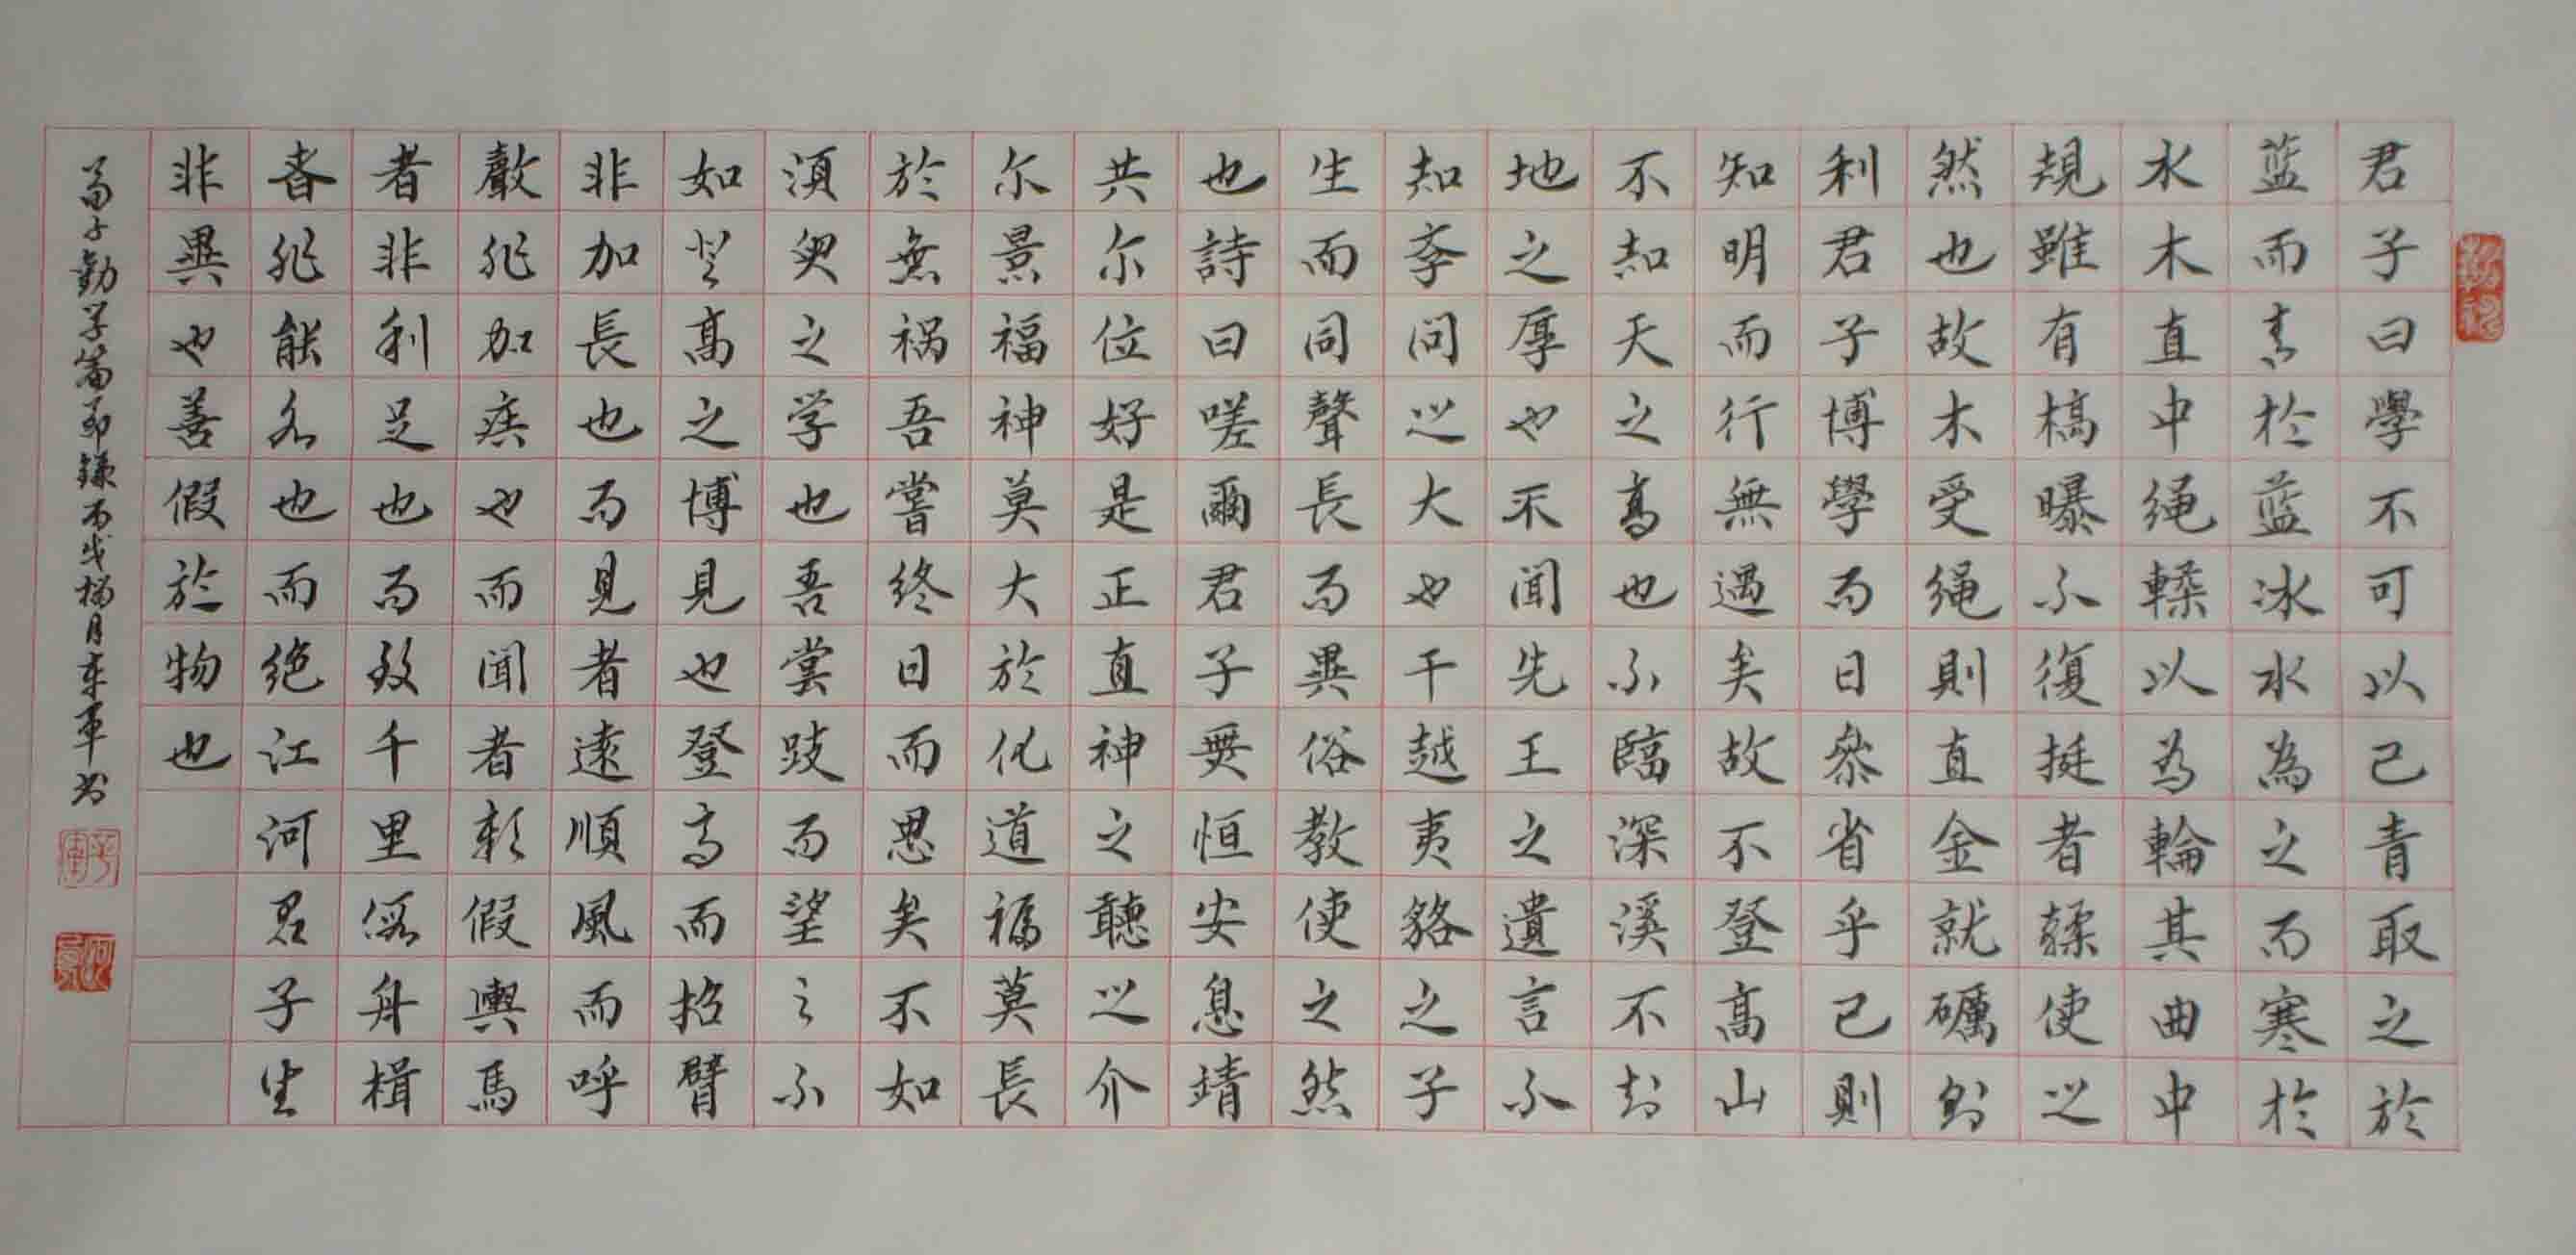 君子曰學不可以已青取之於
蓝而青於蓝冰水為之而寒於
水木直中绳輮以為輪其曲中
規雖有槁曝不復挺者輮使之
然也故木受绳則直金就礪則
利君子博學而日叅省乎己則
知明而行無過矣故不登高山
不知天之高也不臨深溪不知
地之厚也不闻先王之遺言不
知李问之大也干越夷貉之子
生而同聲長而異俗教使之然
也詩曰嗟爾君子無恒安息靖
共尔位好是正直神之聽之介
尔景福神莫大於化道福莫長
於無祸吾嘗终日而思矣不如
須臾之学也吾尝跂而望之不
如登高之博見也登高而招臂
非加長也而見者遠順風而呼
聲非加疾也而闻者彰假輿馬
者非利足也而致千里假舟楫
者非能水也而绝江河君子生
非異也善假於物也
荀子勸学篇節録 月 軍书